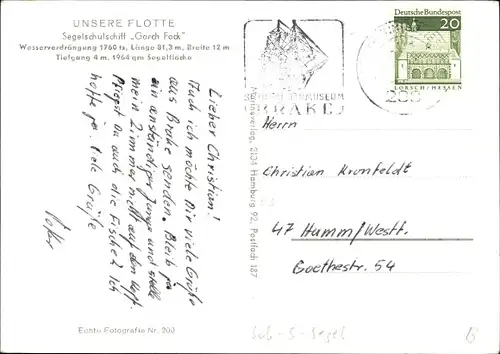 UNSERE FLOTTE
Segelschulschiff „Gorch Fock"
Wasserverdrängung 1760 ts, Länge 81,3 m, Breite 12 m
Tiefgang 4 m, 1964 qm Segelfläche
Lieber Christian!
Auch ich möchte Dir viele Grüße
aus Brake senden. Bleib
ein anständiger Junge und stelle
mein Zimmer nicht auf den Kopf.
Pflegst Du auch die Fische? Ich
hoffe ja! Viele Grüße
Echte Fotografie Nr. 200
Marineverlag, 2134 Hamburg 92, Postfach 187
BRAKE
Deutsche Bundespost
20
LORSCH/HESSEN
Herrn
Christian Kronfeldt
47 Hamm/Westf.
Goethestr. 54
Sub-S-Segel